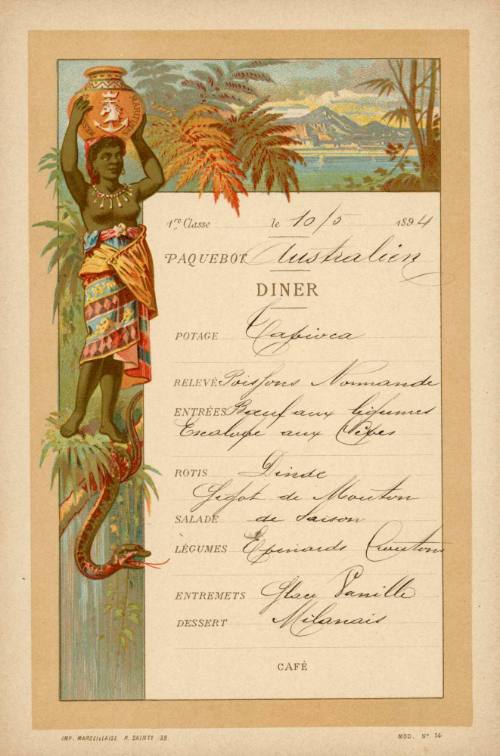 1re Classe le 10/5 1894
PAQUEBOT Australien
DINER
POTAGE Tapioca
RELEVÉ Poissons Normande
ENTRÉES Bœuf aux légumes
Escalope aux Cèpes
ROTIS Dinde
Gigot de Mouton
SALADE de Saison
LÉGUMES Epinards Croutons
ENTREMETS Glace Vanille
DESSERT Milanais
CAFÉ
IMP. MARSEILLAISE, R. SAINTE 39. MOD. No 14